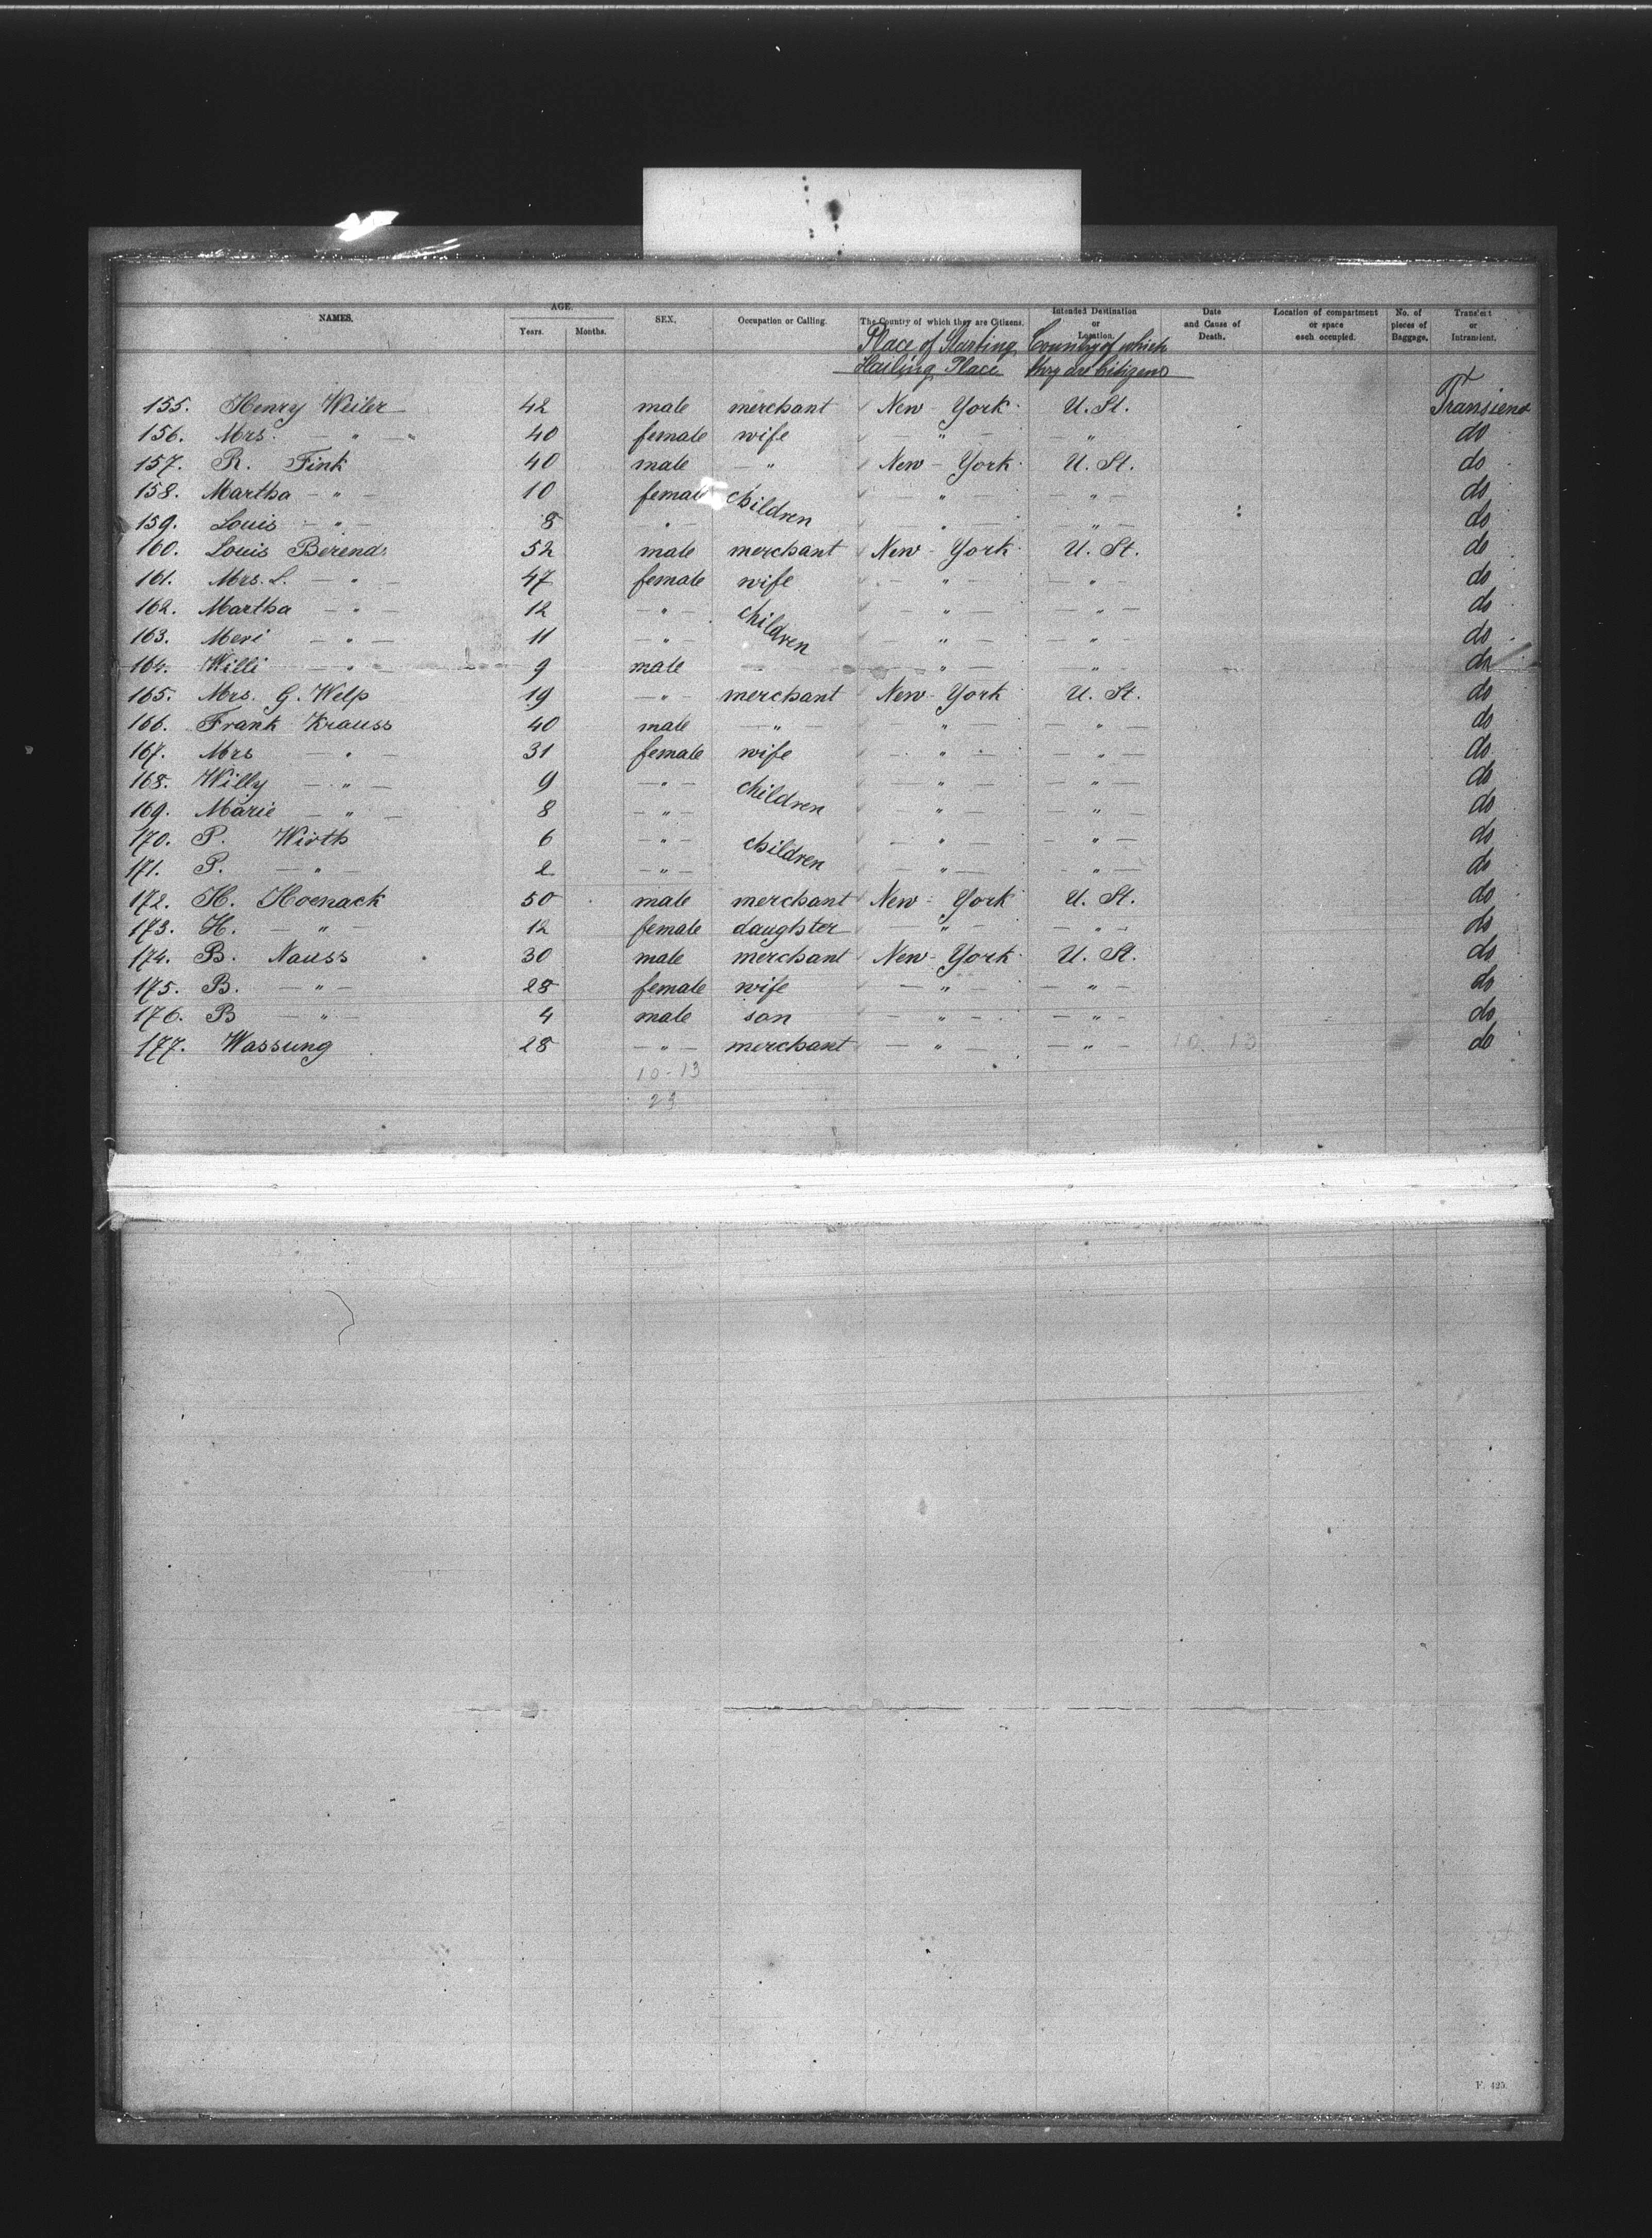 NAMES. AGE. Years. Months. SEX. Occupation or Calling. The Country of which they are Citizens. Intended Destination or Location. Date and Cause of Death. Location of compartment or space each occupied. No. of pieces of Baggage. Transient or Intransient.
Place of Starting Country of which
Hailing Place they are Citizens
155. Henry Weiler 42 male merchant New-York U. St. Transient
156. Mrs. — " — 40 female wife — " — — " do
157. R. Fink 40 male — " New-York U. St. do
158. Martha — " — 10 female children " — " — do
159. Louis — " — 8 — " — — " — — " — do
160. Louis Berend 52 male merchant New-York U. St. do
161. Mrs. L. — " — 47 female wife — " — — " do
162. Martha — " — 12 — " — children — " — — " — do
163. Meri — " — 11 — " — — " — — " — do
164. Willi — " 9 male — — " — — " — do
165. Mrs. G. Welp 19 — " — merchant New-York U. St. do
166. Frank Krauss 40 male — " — — " — — " — do
167. Mrs — " — 31 female wife — " — — " — do
168. Willy — " — 9 — " — children — " — — " — do
169. Marie — " — 8 — " — — " — — " — do
170. P. Wirth 6 — " — children — " — — " — do
171. P. — " — 2 — " — — " — — " — do
172. H. Hoenack 50 male merchant New-York U. St. do
173. H. — " — 12 female daughter — " — — " — do
174. B. Nauss 30 male merchant New-York U. St. do
175. B. — " — 28 female wife — " — — " — do
176. B — " — 4 male son — " — — " — do
177. Wassung 28 — " — merchant — " — — " — 10 13 do
10-13
23
F. 425.